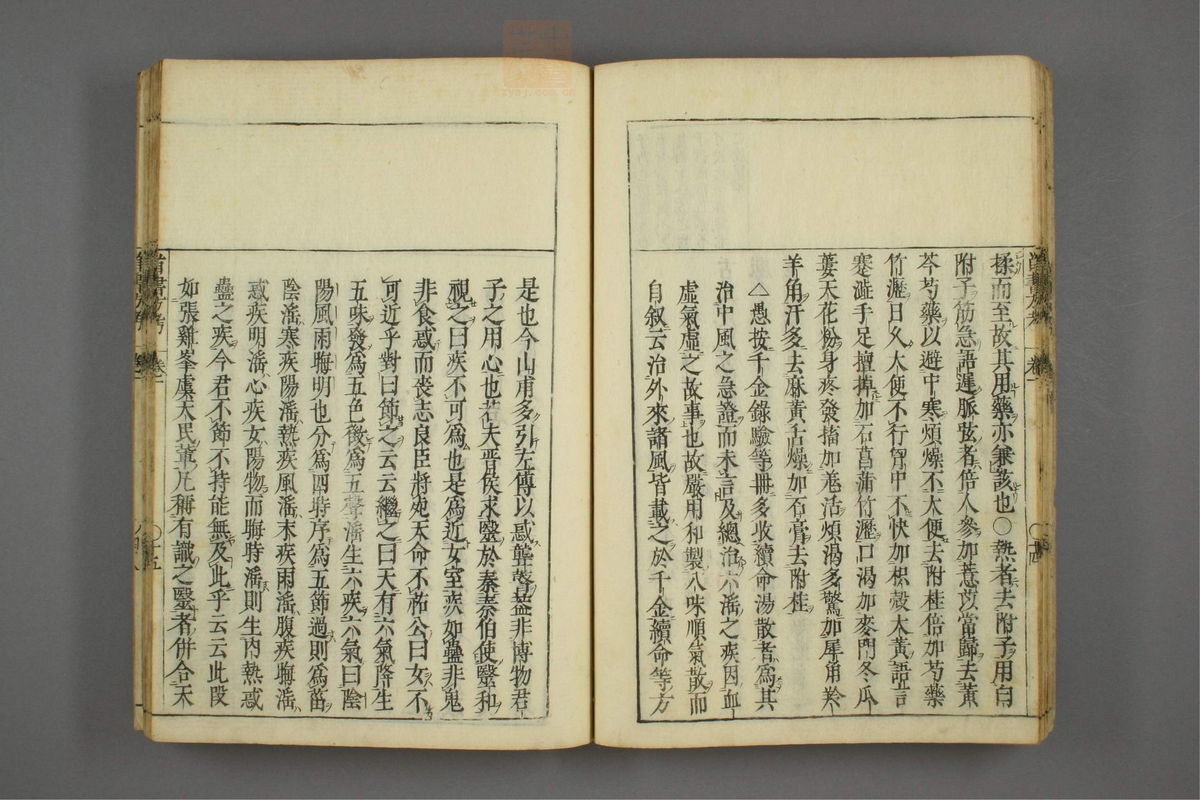 揉而至故其用藥亦兼該也〇熱者去附子用白
附子筋急語遲脈弦者倍人參加薏苡當歸去黃
芩芍藥以避中寒煩燥不大便去附桂倍加芍藥
竹瀝日久大便不行胷中不快加枳殼大黃語言
蹇澁手足擅掉加石菖蒲竹瀝口渴加麥門冬瓜
蔞天花粉身疼發搐加羌活煩渴多驚加犀角羚
羊角汗多去麻黃舌燥加石膏去附桂
△愚按千金錄驗等冊多收續命湯散者爲其
治中風之急證而未言及總治六淫之疾因血
虛氣虛之故事也故嚴用和製八味順氣散而
自叙云治外來諸風皆載之於千金續命等方
是也今山甫多引左傳以惑聾瞽蓋非博物君
子之用心也若夫晋侯求醫於秦秦伯使醫和
視之曰疾不可爲也是爲近女室疾如蠱非鬼
非食惑而喪志良臣將死天命不祐公曰女不
可近乎對曰節之云云繼之曰天有六氣降生
五味發爲五色徵爲五聲淫生六疾六氣曰陰
陽風雨晦明也分爲四時序爲五節過則爲菑
陰淫寒疾陽淫熱疾風淫末疾雨淫腹疾晦淫
惑疾明淫心疾女陽物而晦時淫則生内熱惑
蠱之疾今君不節不持能無及此乎云云此段
如張雞峯虞天民輩凡稱有識之醫者併合天
卷一
十五
zysj.com.cn